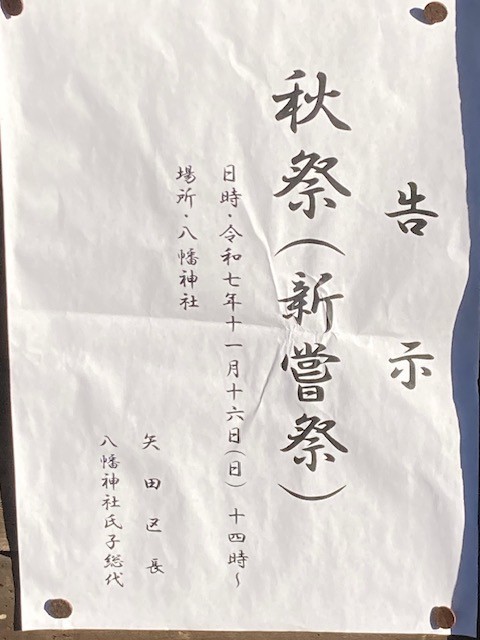 告示
秋祭(新嘗祭)
日時・令和七年十一月十六日(日) 十四時~
場所・八幡神社
矢田区長
八幡神社氏子総代